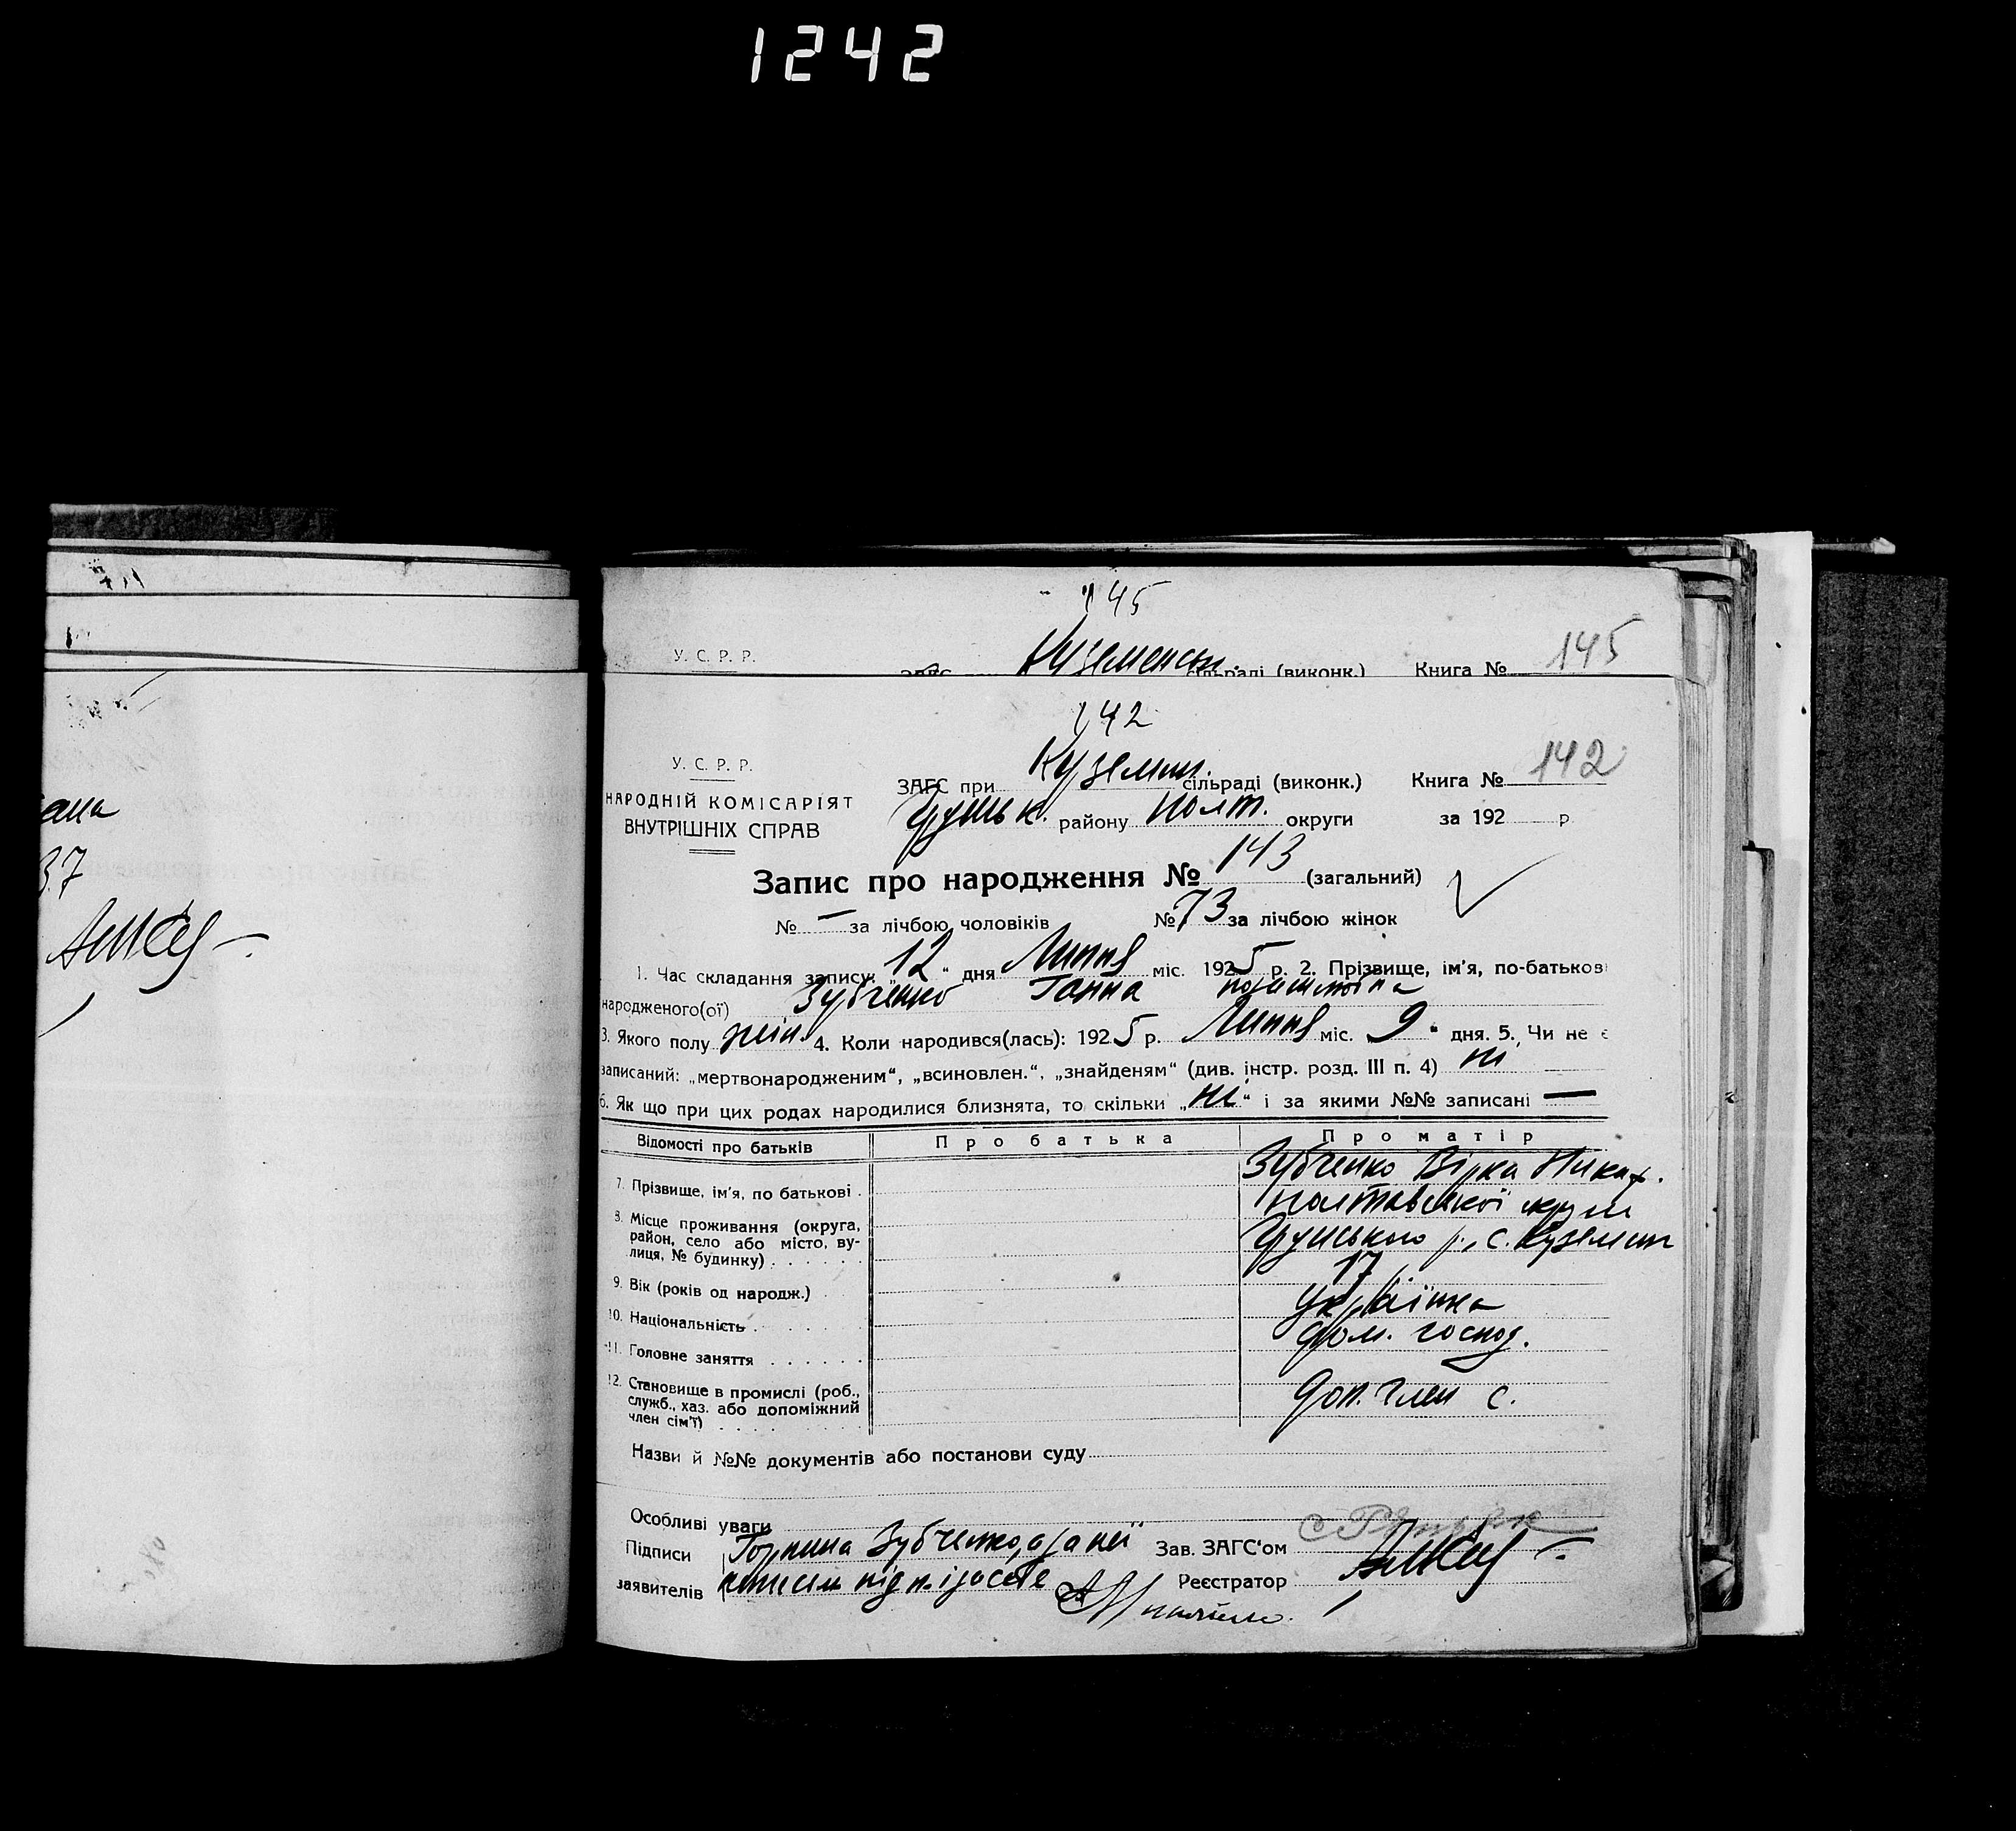 1242
ана
37
145
У. С. Р. Р.
Куземенськ. сільраді (виконк.) Книга № 145
142
У. С. Р. Р.
НАРОДНІЙ КОМІСАРІЯТ
ВНУТРІШНІХ СПРАВ
ЗАГС при Куземин. сільраді (виконк.) Книга № 142
Груньк. району Полт. округи за 192 р
Запис про народження № 143 (загальний)
№ — за лічбою чоловіків № 73 за лічбою жінок
1. Час складання запису: „12“ дня Липня міс. 1925 р. 2. Прізвище, ім'я, по-батькові
народженого(ої) Зубченко Ганна
3. Якого полу жін. 4. Коли народився(лась): 1925 р. Липня міс. 9 “ дня. 5. Чи не є
записаний: „мертвонародженим“, „всиновлен.“, „знайденям“ (див. інстр. розд. III п. 4) ні
6. Як що при цих родах народилися близнята, то скільки „ні“ і за якими №№ записані —
Відомості про батьків Про батька Про матір
7. Прізвище, ім'я, по батькові . Зубченко Вірка Никиф.
8. Місце проживання (округа, район, село або місто, вулиця, № будинку) . . . . . . Полтавської округи
Грунського р., с. Куземин
9. Вік (років од народж.) 17
10. Національність . Українка
11. Головне заняття . . . . . . дом. господ.
12. Становище в промислі (роб., служб., хаз. або допоміжний член сім'ї) . . . . доп. член с.
Назви й №№ документів або постанови суду
Особливі уваги
Підписи заявителів Горпина Зубченко, а за неї
Зав. ЗАГС'ом
Реєстратор